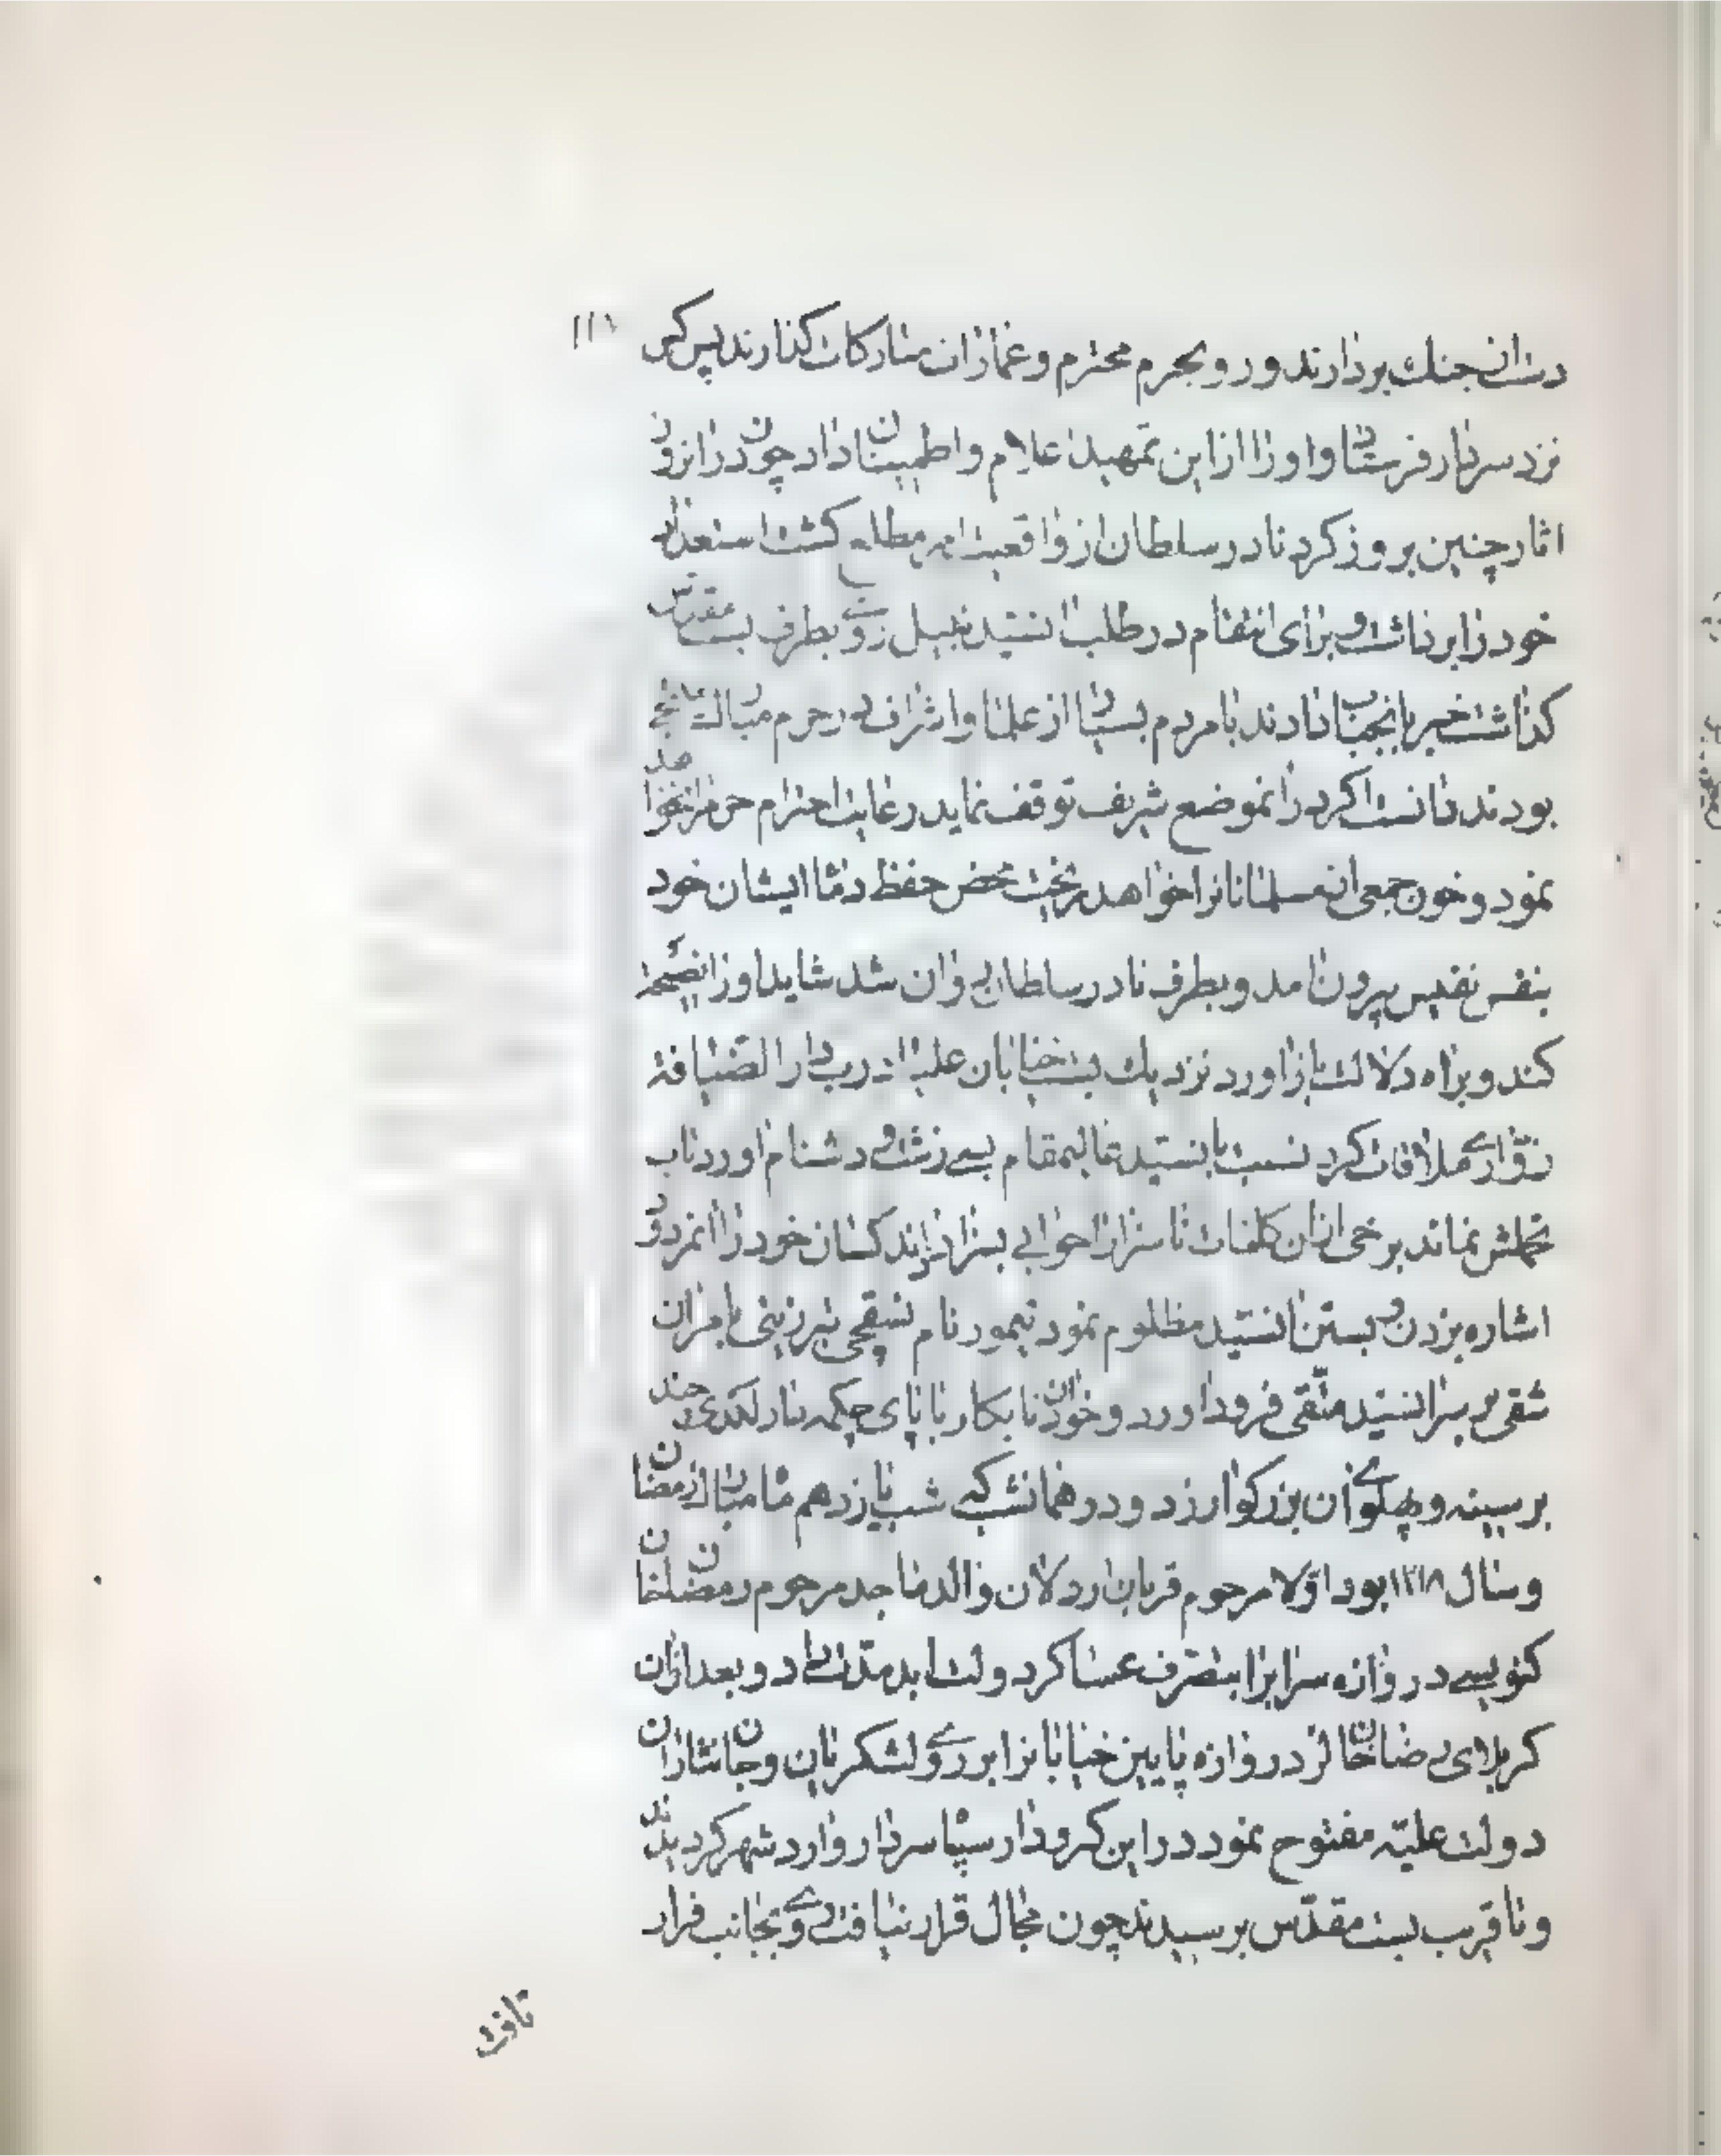 ۱۱۱
دست از جنک بردارند و رو بحرم محترم و عمارات مبارکات کذارند پس کس
نزد سردار فرستاد و او را از این تمهید اعلام و اطمینان داد چون در انروز
اثار چنین بروز کرد نادر سلطان از واقعیت امر مطلع کشت استعداد
خود را برداشت و برای انتقام در طلب انسید نبیل روی بطرف بست مقدس
کذاشت خبر بانجناب دادند با مردم بسیار از علما و اشراف در حرم مبارک ملتجی
بودند دانست اکر در انموضع شریف توقف نماید رعایت احترام حرم را نخواهد
نمود و خون جمعی از مسلمانانرا خواهد ریخت محض حفظ دماء ایشان خود
بنفس نفیس بیرون امد و بطرف نادر سلطان روان شد شاید او را نصیحت
کند و براه دلالت باز اورد نزدیک بست خیابان علیا درب دار الضیافه
زواری ملاقات کرد نسبت بانسید عالیمقام بسی زشت و دشنام اورد تاب
تحملش نماند برخی ازان کلمات ناسزا را جوابی بسزا راند کسان خود را انمردود
اشاره بزدن و بستن انسید مظلوم نمود تیمور نام نسقچی تبرزینی بامر ان
شقی بر سر انسید متقی فرود اورد و خود ان نابکار با پای چکمه دار لکدی چند
بر سینه و پهلوی ان بزرکوار زد و در همانشب که شب یازدهم ماه مبارک رمضان
و سال ۱۲۱۸ بود اولا مرحوم قربان اردلان والد ماجد مرحوم رمضانخان
کنویسی دروازه سراب را بتصرف عساکر دولت ابد مدت داد و بعد ازان
کربلای رضا خان لر دروازه پایین خیابانرا بروی لشکریان و جان نثاران
دولت علیه مفتوح نمود در این کرودار سپاه سردار وارد شهر کردیدند
و تا قریب بست مقدس برسیدند چون مجال قرار نیافت روی بجانب فرار
تافت